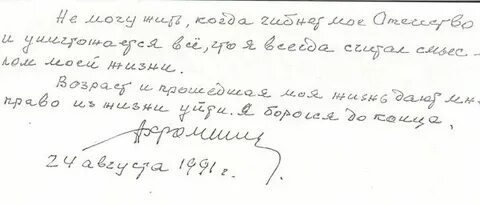 Не могу жить, когда гибнет мое Отечество
и уничтожается всё, что я всегда считал смыс-
лом моей жизни.
Возраст и прошедшая моя жизнь дают мне
право из жизни уйти. Я боролся до конца.
Ахромеев
24 августа 1991 г.